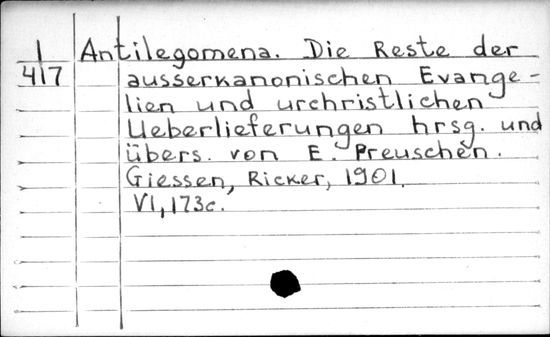 1
417
Antilegomena. Die Reste der
ausserkanonischen Evange-
lien und urchristlichen
Ueberlieferungen hrsg. und
übers. von E. Preuschen.
Giessen, Ricker, 1901.
VI, 173c.